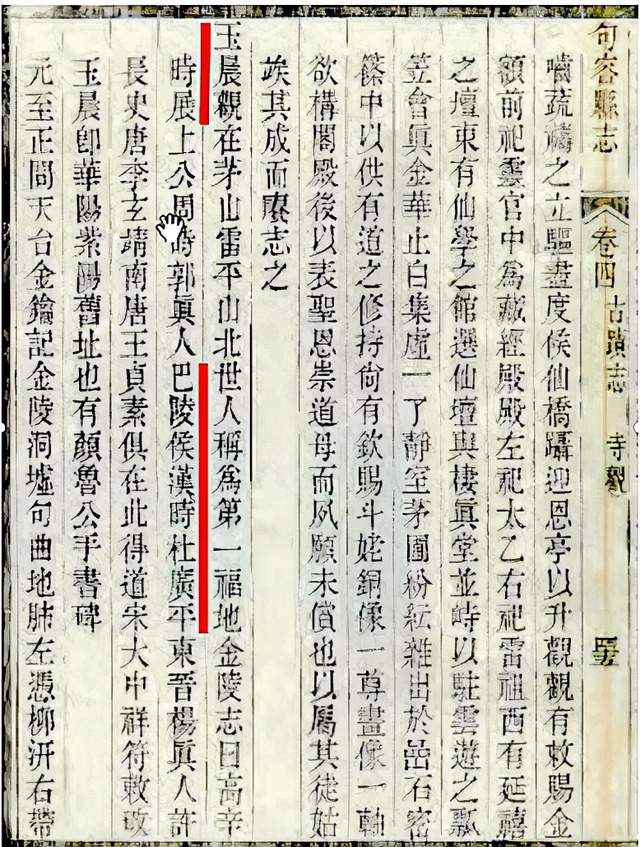 句容縣志 卷四 古蹟志 寺觀
嚙蔬禱之立驅盡度侯仙橋躡迎恩亭以升觀觀有敕賜金
額前祀靈官中爲藏經殿殿左祀太乙右祀雷祖西有延禧
之壇東有仙學之館選仙壇與棲眞堂並峙以駐雲遊之瓢
笠會眞金華止白集虛一了靜室茅圃紛紜雜出於嵒石密
篠中以供有道之修持尙有欽賜斗姥銅像一尊畫像一軸
欲構閣殿後以表聖恩崇道母而夙願未償也以屬其徒姑
竢其成而志之
玉晨觀在茅山雷平山北世人稱爲第一福地金陵志曰高辛
時展上公周時郭眞人巴陵侯漢時杜廣平東晉楊眞人許
長史唐李玄靖南唐王貞素俱在此得道宋大中祥符敕改
玉晨卽華陽紫陽舊址也有顏魯公手書碑
元至正間天台金鑰記金陵洞墟句曲地肺左憑柳汧右帶